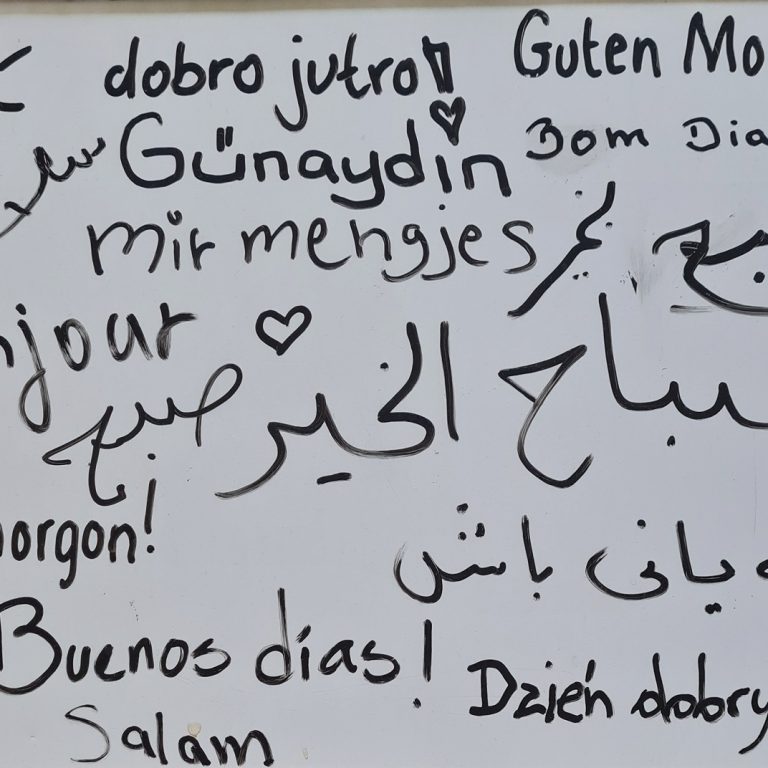 dobro jutro!
Guten Mo
Günaydin
Bom Dia
mir mengjes
بخير
njour
صباح الخير
صبح
orgon!
یانی باش
Buenos días!
Dzień dobry
Salam